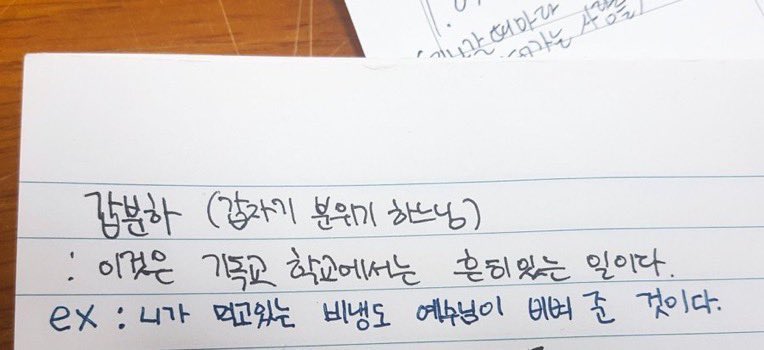 때마다
가는 사람들
갑분하 (갑자기 분위기 하느님)
: 이것은 기독교 학교에서는 흔히있는 일이다.
ex : 니가 먹고있는 비냉도 예수님이 비벼 준 것이다.